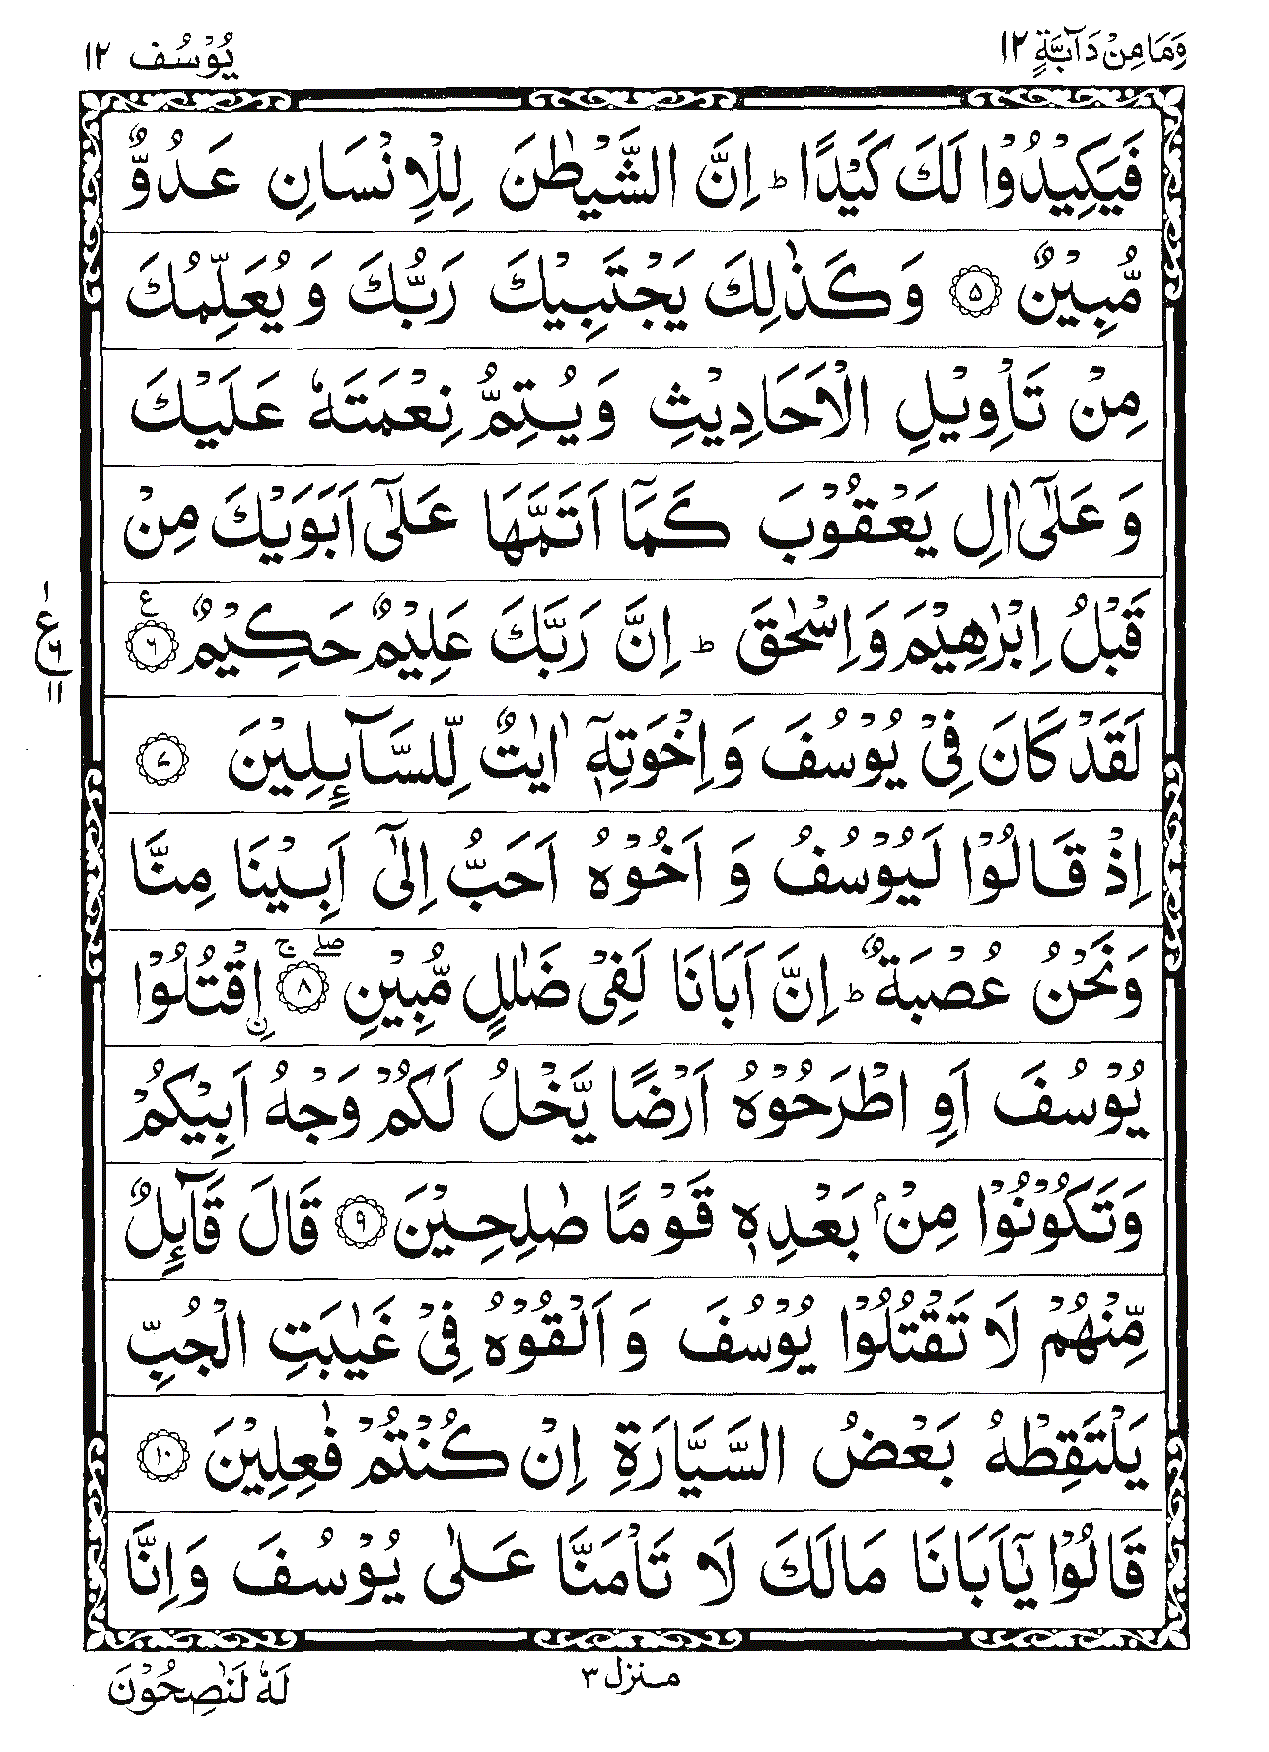 وَمَا مِنْ دَآبَّةٍ ١٢
يُوْسُف ١٢
فَيَكِيْدُوْا لَكَ كَيْدًا ؕ اِنَّ الشَّيْطٰنَ لِلْاِنْسَانِ عَدُوٌّ
مُّبِيْنٌ ۵ وَكَذٰلِكَ يَجْتَبِيْكَ رَبُّكَ وَيُعَلِّمُكَ
مِنْ تَاْوِيْلِ الْاَحَادِيْثِ وَيُتِمُّ نِعْمَتَهٗ عَلَيْكَ
وَعَلٰٓى اٰلِ يَعْقُوْبَ كَمَآ اَتَمَّهَا عَلٰٓى اَبَوَيْكَ مِنْ
قَبْلُ اِبْرٰهِيْمَ وَاِسْحٰقَ ؕ اِنَّ رَبَّكَ عَلِيْمٌ حَكِيْمٌ ۶ ع
ع ١ ۶ ١١
لَقَدْ كَانَ فِيْ يُوْسُفَ وَاِخْوَتِهٖٓ اٰيٰتٌ لِّلسَّآئِلِيْنَ ۷
اِذْ قَالُوْا لَيُوْسُفُ وَاَخُوْهُ اَحَبُّ اِلٰٓى اَبِيْنَا مِنَّا
وَنَحْنُ عُصْبَةٌ ؕ اِنَّ اَبَانَا لَفِيْ ضَلٰلٍ مُّبِيْنِ ۸ ۖ ۚ اِ۟قْتُلُوْا
يُوْسُفَ اَوِ اطْرَحُوْهُ اَرْضًا يَّخْلُ لَكُمْ وَجْهُ اَبِيْكُمْ
وَتَكُوْنُوْا مِنْۢ بَعْدِهٖ قَوْمًا صٰلِحِيْنَ ۹ قَالَ قَآئِلٌ
مِّنْهُمْ لَا تَقْتُلُوْا يُوْسُفَ وَاَلْقُوْهُ فِيْ غَيٰبَتِ الْجُبِّ
يَلْتَقِطْهُ بَعْضُ السَّيَّارَةِ اِنْ كُنْتُمْ فٰعِلِيْنَ ١٠
قَالُوْا يٰٓاَبَانَا مَالَكَ لَا تَاْمَنَّا عَلٰى يُوْسُفَ وَاِنَّا
منزل ٣
لَهٗ لَنٰصِحُوْنَ